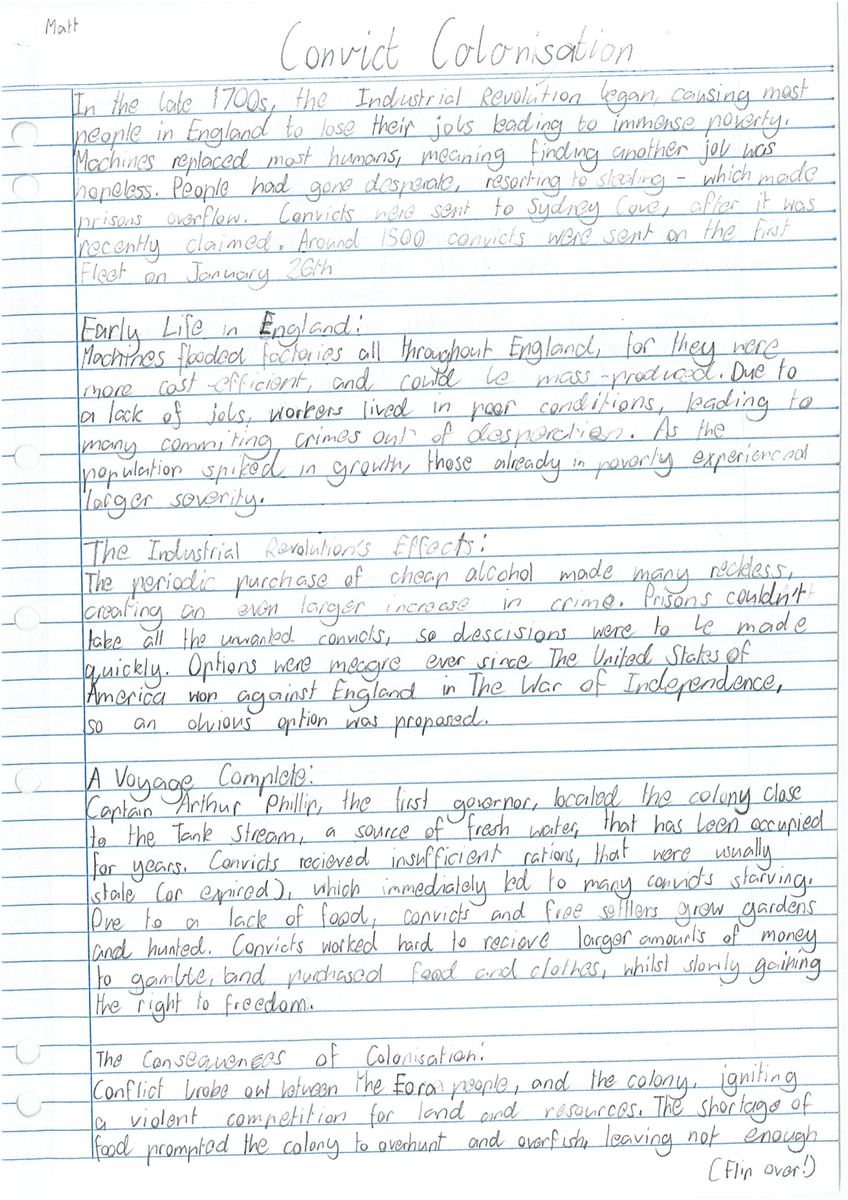 Matt
Convict Colonisation
In the late 1700s, the Industrial Revolution began, causing most
people in England to lose their jobs leading to immense poverty.
Machines replaced most humans, meaning finding another job was
hopeless. People had gone desperate, resorting to stealing - which made
prisons overflow. Convicts were sent to Sydney Cove, after it was
recently claimed. Around 1500 convicts were sent on the First
Fleet on January 26th
Early Life in England:
Machines flooded factories all throughout England, for they were
more cost-efficient, and could be mass-produced. Due to
a lack of jobs, workers lived in poor conditions, leading to
many commiting crimes out of desperation. As the
population spiked in growth, those already in poverty experienced
larger severity.
The Industrial Revolution's Effects:
The periodic purchase of cheap alcohol made many reckless,
creating an even larger increase in crime. Prisons couldn't
take all the unwanted convicts, so descisions were to be made
quickly. Options were meagre ever since The United States of
America won against England in The War of Independence,
so an obvious option was proposed.
A Voyage Complete:
Captain Arthur Phillip, the first governor, located the colony close
to the Tank Stream, a source of fresh water, that has been occupied
for years. Convicts recieved insufficient rations, that were usually
stale (or expired), which immediately led to many convicts starving.
Due to a lack of food, convicts and free settlers grew gardens
and hunted. Convicts worked hard to recieve larger amounts of money
to gamble, and purchased food and clothes, whilst slowly gaining
the right to freedom.
The Consequences of Colonisation:
Conflict broke out between the Eora people, and the colony, igniting
a violent competition for land and resources. The shortage of
food prompted the colony to overhunt and overfish, leaving not enough
(Flip over!)